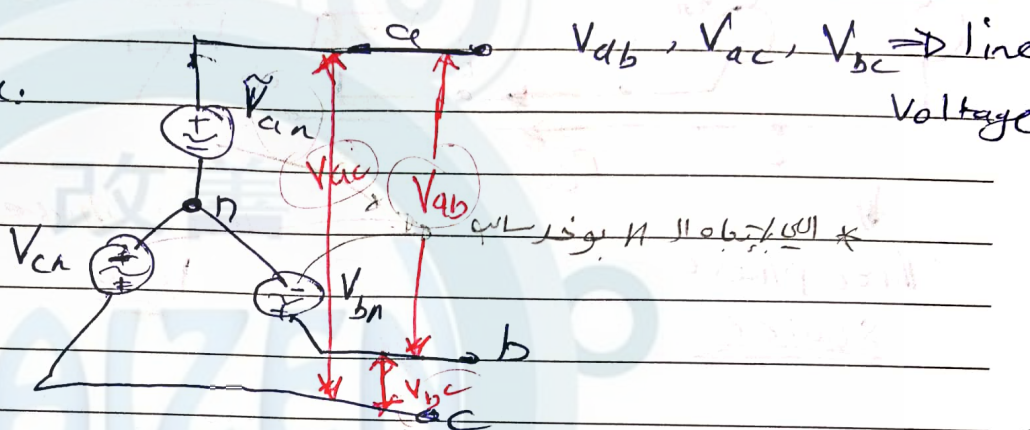 a
V_ab , V_ac , V_bc ⇒ line
Voltage
c.
+
Ṽan
Vac
Vab
n
* اللي باتجاه ال n بوخد سالب
Vcn
+
-
Vbn
+
b
Vbc
c
改善